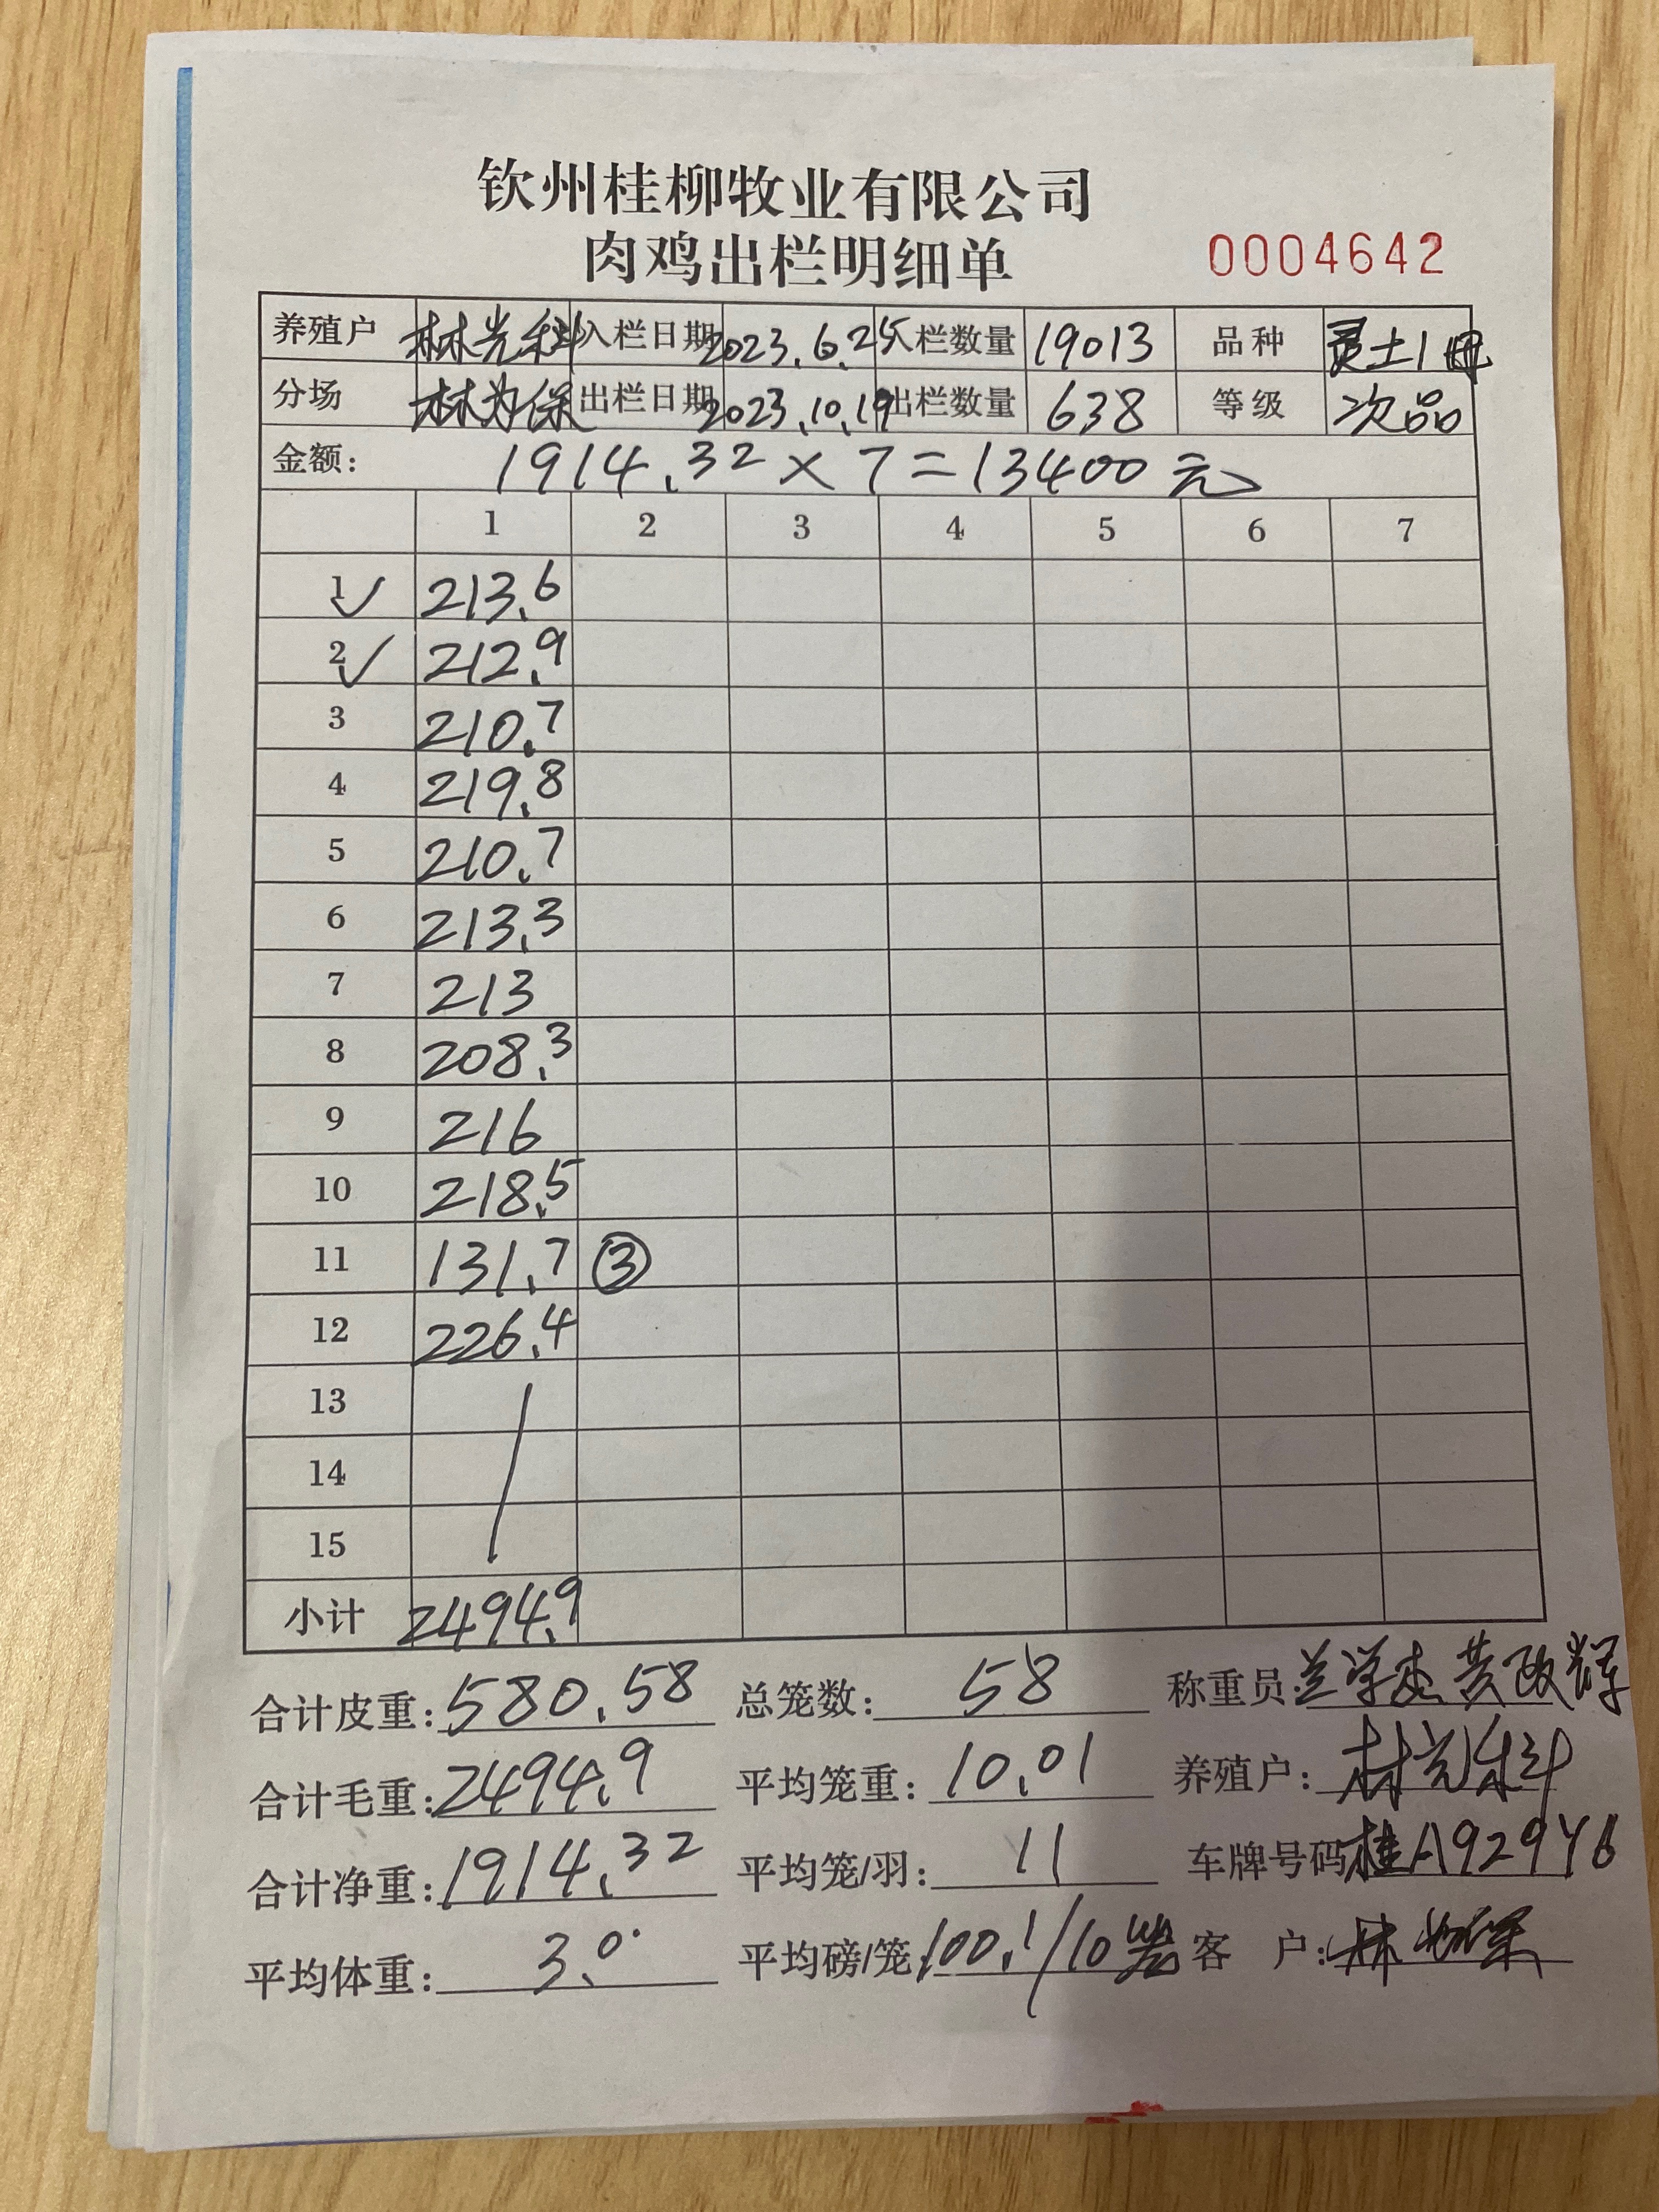 钦州桂柳牧业有限公司
肉鸡出栏明细单 0004642
养殖户 林光科 入栏日期 2023.6.25 入栏数量 19013 品种 灵土1母
分场 林为保 出栏日期 2023.10.19 出栏数量 638 等级 次品
金额: 1914.32×7=13400元
1 2 3 4 5 6 7
1✓ 213.6
2✓ 212.9
3 210.7
4 219.8
5 210.7
6 213.3
7 213
8 208.3
9 216
10 218.5
11 131.7 ③
12 226.4
13
14
15
小计 2494.9
合计皮重: 580.58 总笼数: 58 称重员: 黄政辉
合计毛重: 2494.9 平均笼重: 10.01 养殖户: 林光科
合计净重: 1914.32 平均笼/羽: 11 车牌号码 桂A929Y6
平均体重: 3.0 平均磅/笼 100.1/10 客户: